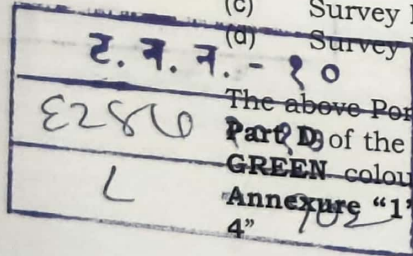 (c) Survey
(d) Survey
ट. न. न. - १०
The above Por
६२४७
Part D of the
GREEN colou
Annexure “1”
4”